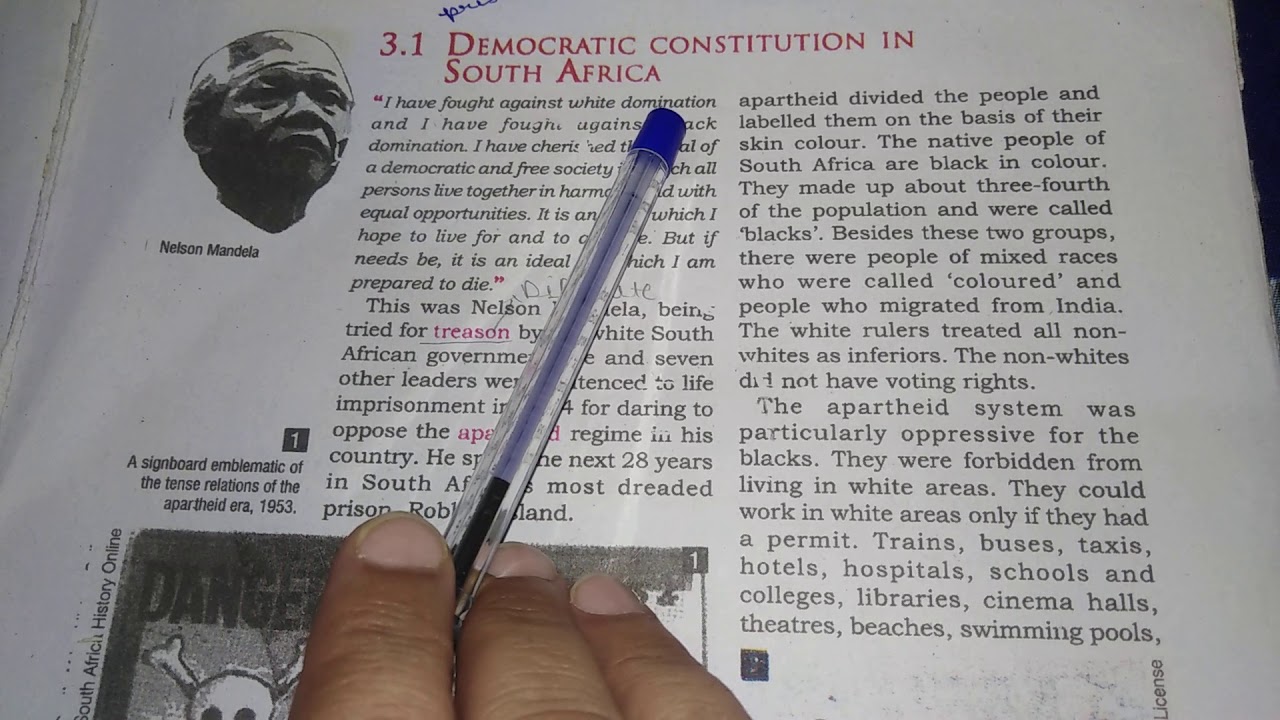 3.1 DEMOCRATIC CONSTITUTION IN
SOUTH AFRICA
Nelson Mandela
"I have fought against white domination
and I have fought against
domination. I have of
a democratic and free society all
persons live together in with
equal opportunities. It is an which I
hope to live for and to But if
needs be, it is an ideal which I am
prepared to die."
This was Nelson being
tried for treason by white South
African and seven
other leaders to life
imprisonment in for daring to
oppose the regime in his
country. He next 28 years
in South most dreaded
prison,
1
A signboard emblematic of
the tense relations of the
apartheid era, 1953.
South Africa History Online
1
apartheid divided the people and
labelled them on the basis of their
skin colour. The native people of
South Africa are black in colour.
They made up about three-fourth
of the population and were called
‘blacks’. Besides these two groups,
there were people of mixed races
who were called ‘coloured’ and
people who migrated from India.
The white rulers treated all non-
whites as inferiors. The non-whites
did not have voting rights.
The apartheid system was
particularly oppressive for the
blacks. They were forbidden from
living in white areas. They could
work in white areas only if they had
a permit. Trains, buses, taxis,
hotels, hospitals, schools and
colleges, libraries, cinema halls,
theatres, beaches, swimming pools,
License